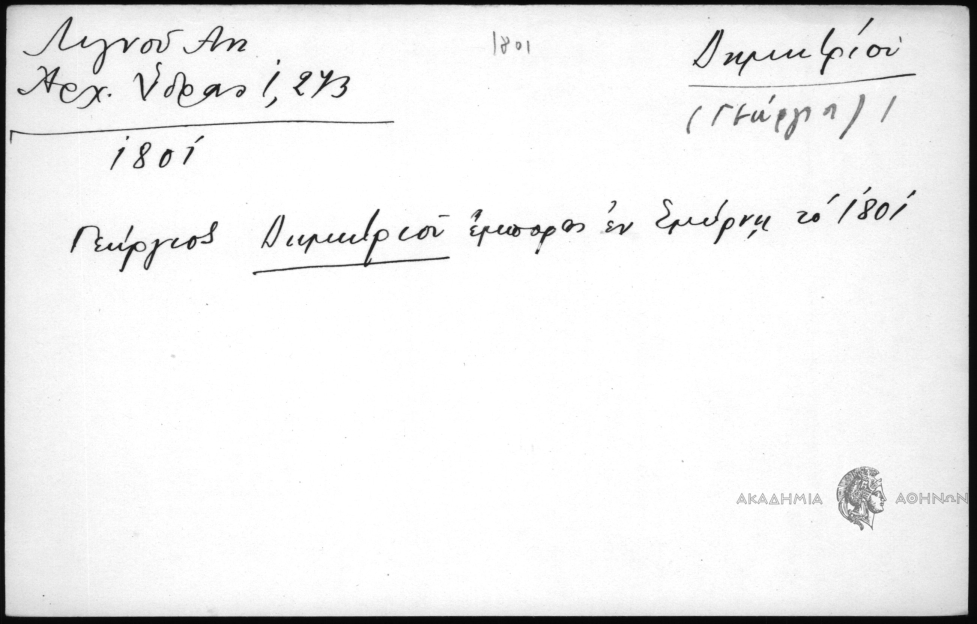 Λιγνού Αντ
Αρχ. Ύδρας 1, 273
1801
1801
Δημητρίου
(Γεώργιος)
Γεώργιος Δημητρίου έμπορος εν Σμύρνη το 1801
ΑΚΑΔΗΜΙΑ ΑΘΗΝΩΝ